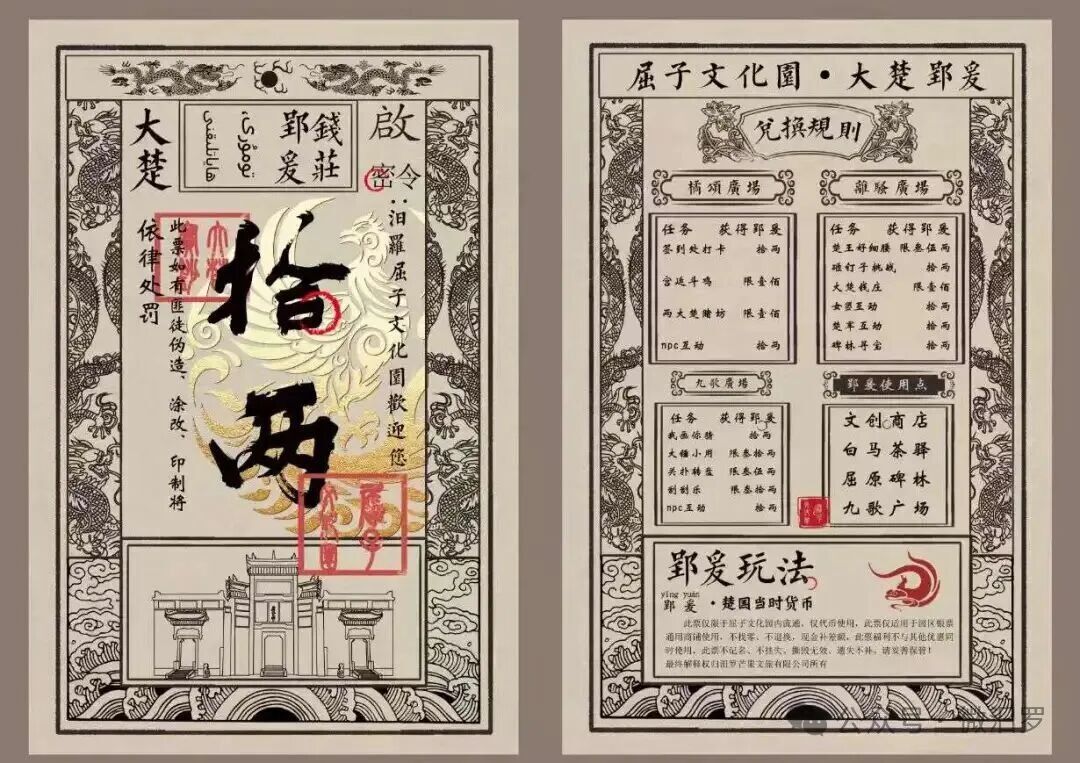 大楚
郢爰
錢莊
啟
密令:汨羅屈子文化園歡迎您
拾两
此票如有匪徒伪造、涂改、印制将
依律处罚
屈子文化園·大楚郢爰
兌換規則
橘頌廣場
任务 获得郢爰
签到处打卡 拾两
宫廷斗鸡 限壹佰
两大楚赌坊 限壹佰
npc互动 拾两
離騷廣場
任务 获得郢爰
楚王好细腰 限叁伍两
碰钉子挑战 拾两
大楚钱庄 限壹佰
女巫互动 拾两
楚军互动 拾两
碑林寻宝 拾两
九歌廣場
任务 获得郢爰
我画你猜 拾两
大锤小用 限叁拾两
关扑转盘 限叁伍两
刮刮乐 限叁拾两
npc互动 拾两
郢爰使用点
文创商店
白马茶驿
屈原碑林
九歌广场
郢爰玩法
yǐng yuán
郢爰·楚国当时货币
此票仅限于屈子文化园内流通，仅代币使用，此票仅适用于园区银票
通用商铺使用，不找零、不退换，现金补差额，此票福利不与其他优惠同
时使用，此票不记名、不挂失、撕毁无效、遗失不补，请妥善保管！
最终解释权归汨罗芒果文旅有限公司所有
公众号·微汨罗